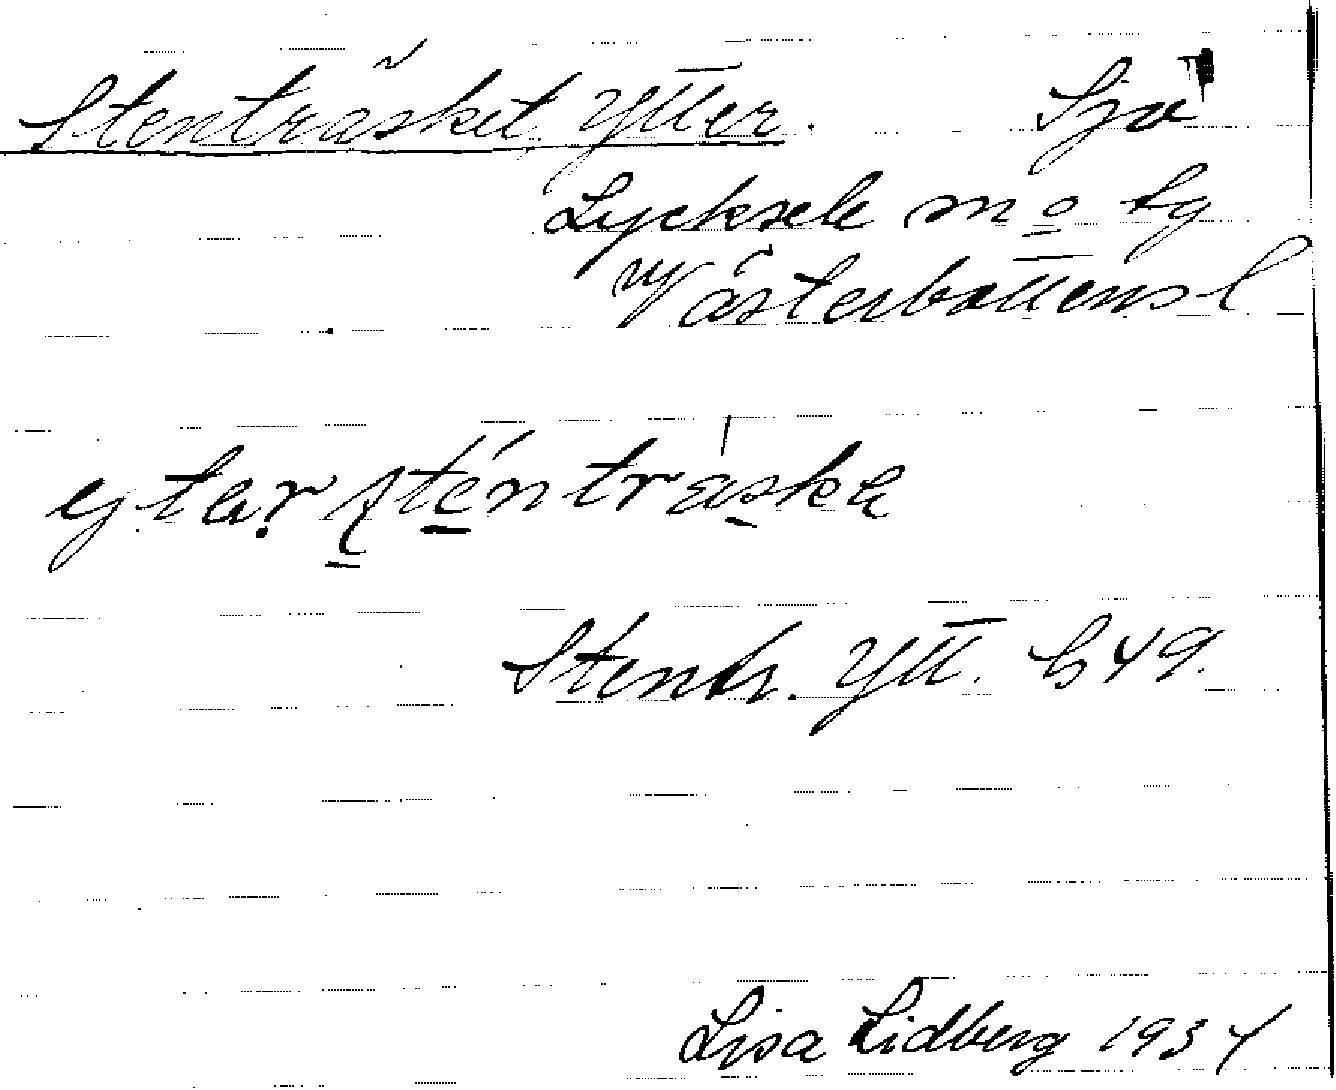 Stenträsket Ytter. Sjö
Lycksele m o tg
Västerbottens l
ytar sténtráska
Stentr. Ytt. b 49.
Lisa Lidberg 1934